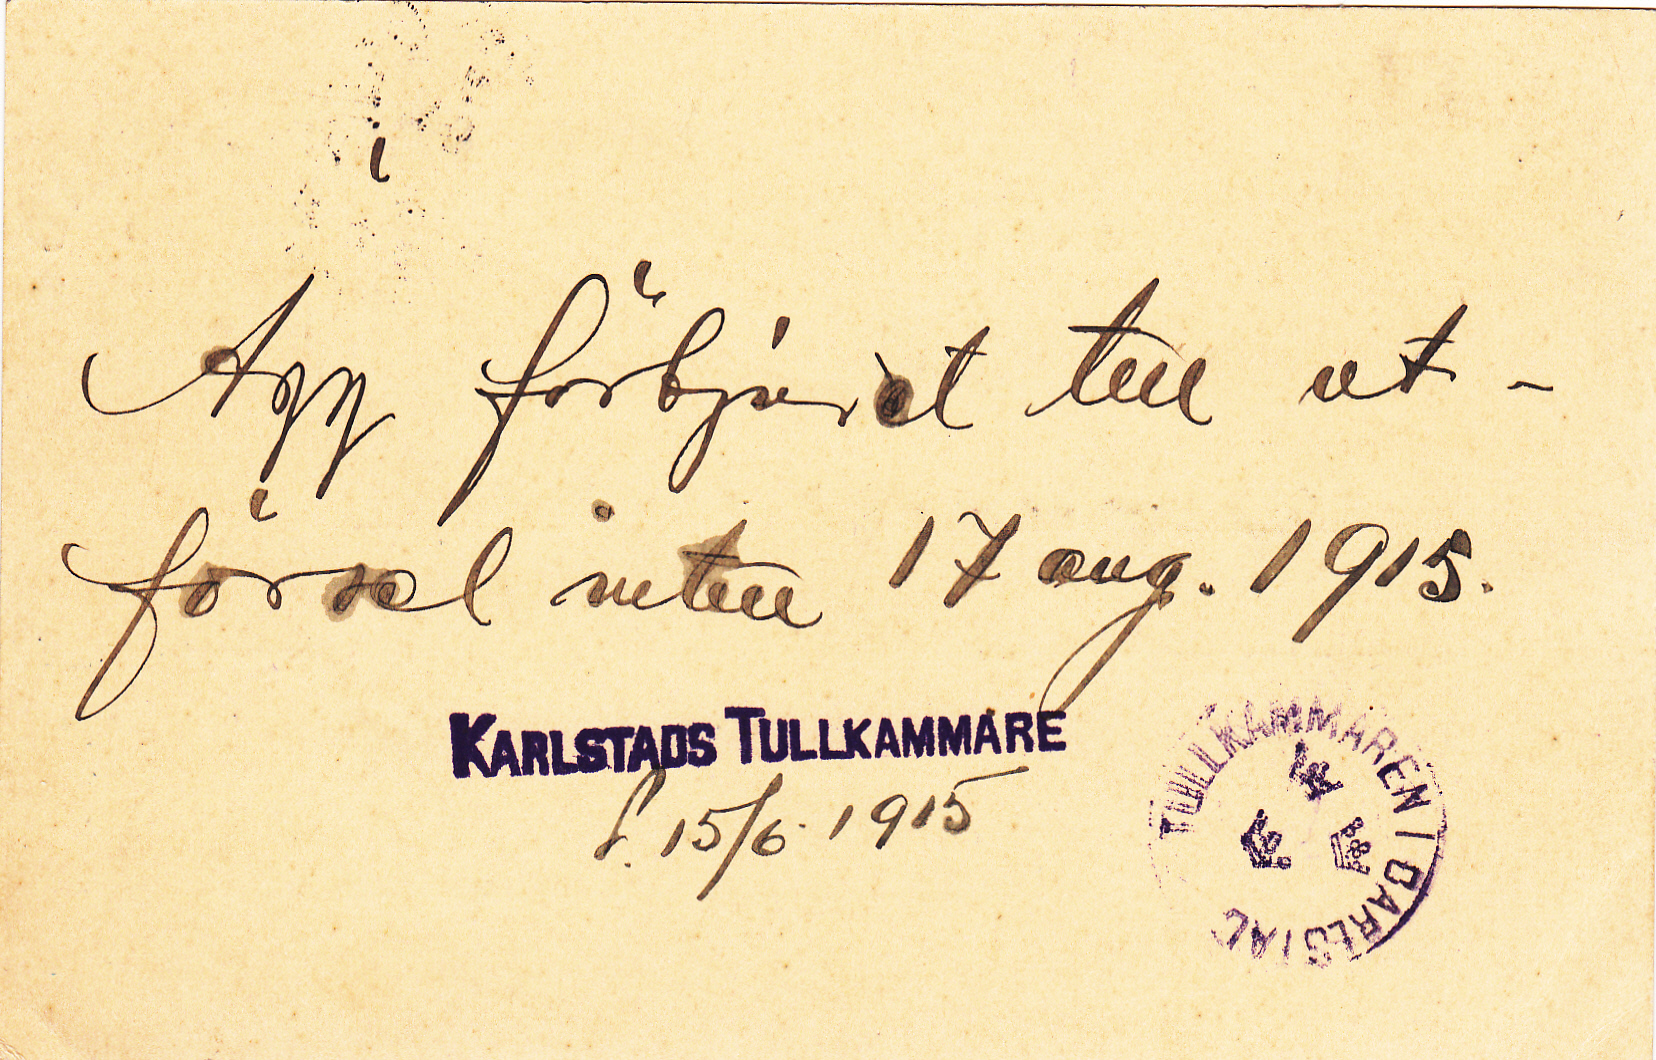 Ägg förbjudet till ut-
försel intill 17 aug. 1915.
KARLSTADS TULLKAMMARE
d. 15/6. 1915
TULLKAMMAREN I CARLSTAD